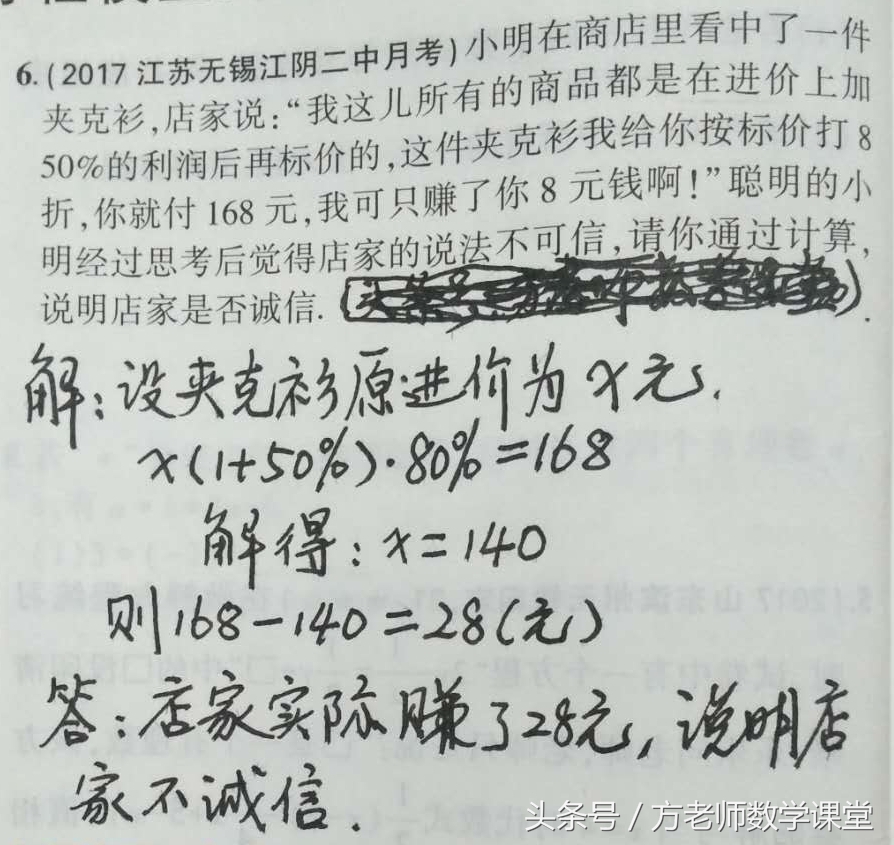 6.(2017江苏无锡江阴二中月考)小明在商店里看中了一件
夹克衫,店家说:“我这儿所有的商品都是在进价上加
50%的利润后再标价的,这件夹克衫我给你按标价打8
折,你就付168元,我可只赚了你8元钱啊!”聪明的小
明经过思考后觉得店家的说法不可信,请你通过计算,
说明店家是否诚信.
解:设夹克衫原进价为x元.
x(1+50%)·80%=168
解得:x=140
则168-140=28(元)
答:店家实际赚了28元,说明店
家不诚信.
头条号/方老师数学课堂